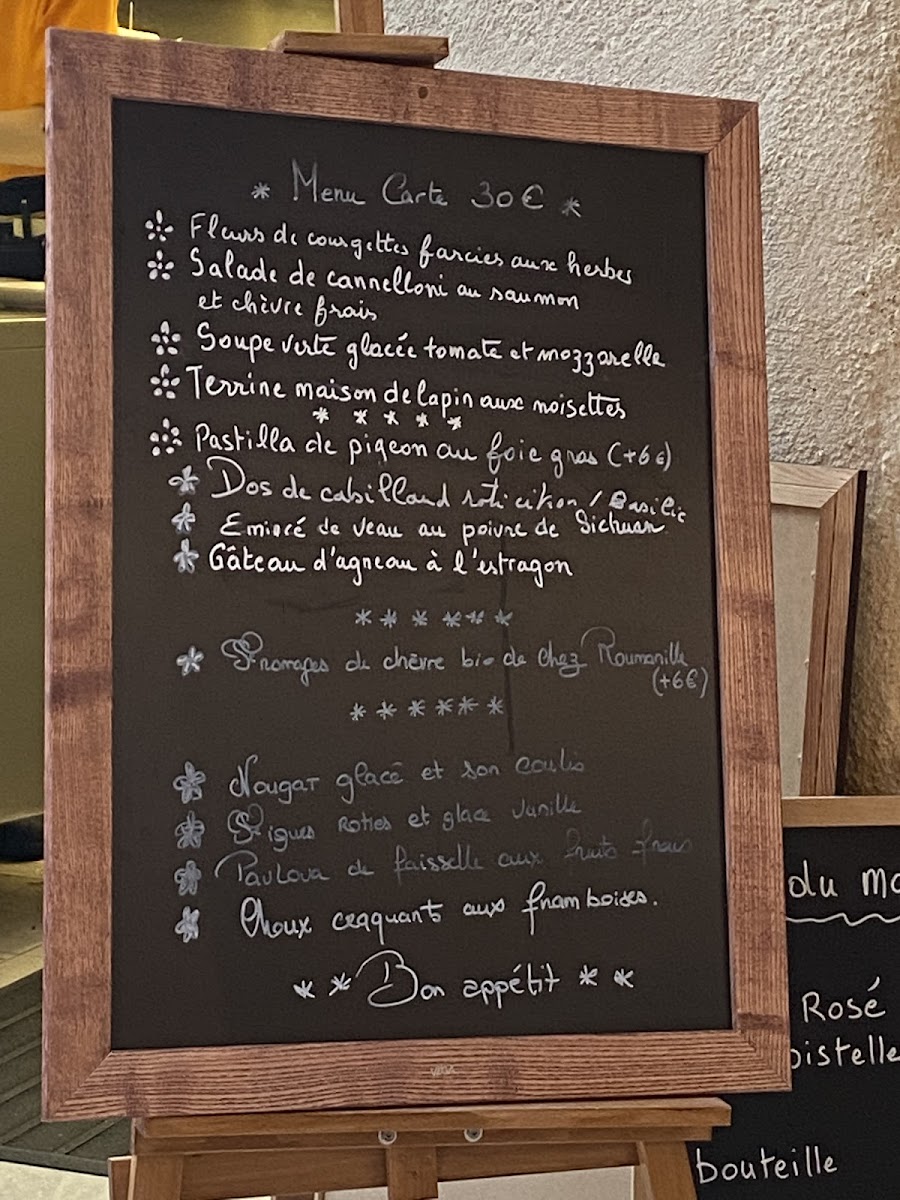 * Menu Carte 30€ *
Fleurs de courgettes farcies aux herbes
Salade de cannelloni au saumon
et chèvre frais
Soupe verte glacée tomate et mozzarelle
Terrine maison de lapin aux noisettes
* * * * *
Pastilla de pigeon au foie gras (+6€)
* Dos de cabillaud roti citron / Basilic
* Emincé de veau au poivre de Sichuan
* Gâteau d'agneau à l'estragon
* * * * * *
* Fromages de chèvre bio de chez Roumanille
(+6€)
* * * * * *
* Nougat glacé et son coulis
* Figues Roties et glace vanille
* Pavlova de faisselle aux fruits frais
* Choux craquant aux framboises.
* * Bon appétit * *
du mo
Rosé
pistelle
bouteille